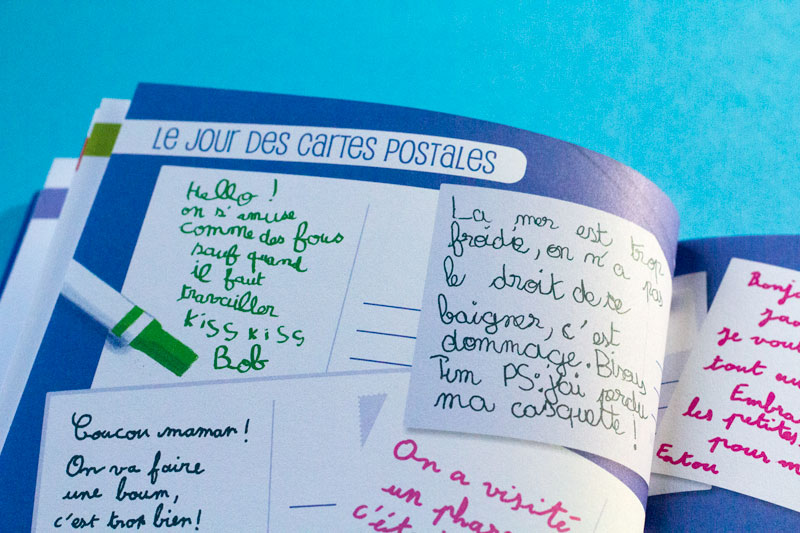 Le jour des cartes postales
Hello !
on s'amuse
comme des fous
sauf quand
il faut
travailler
Kiss Kiss
Bob
La mer est trop
froide, on n'a pas
le droit de se
baigner, c'est
dommage. Bisous
Tim PS: j'ai perdu
ma casquette !
Coucou maman !
On va faire
une boum,
c'est trop bien !
On a visité
un phare
c'ét
Bonj
Je vou
tout au
Embra
les petites
pour m